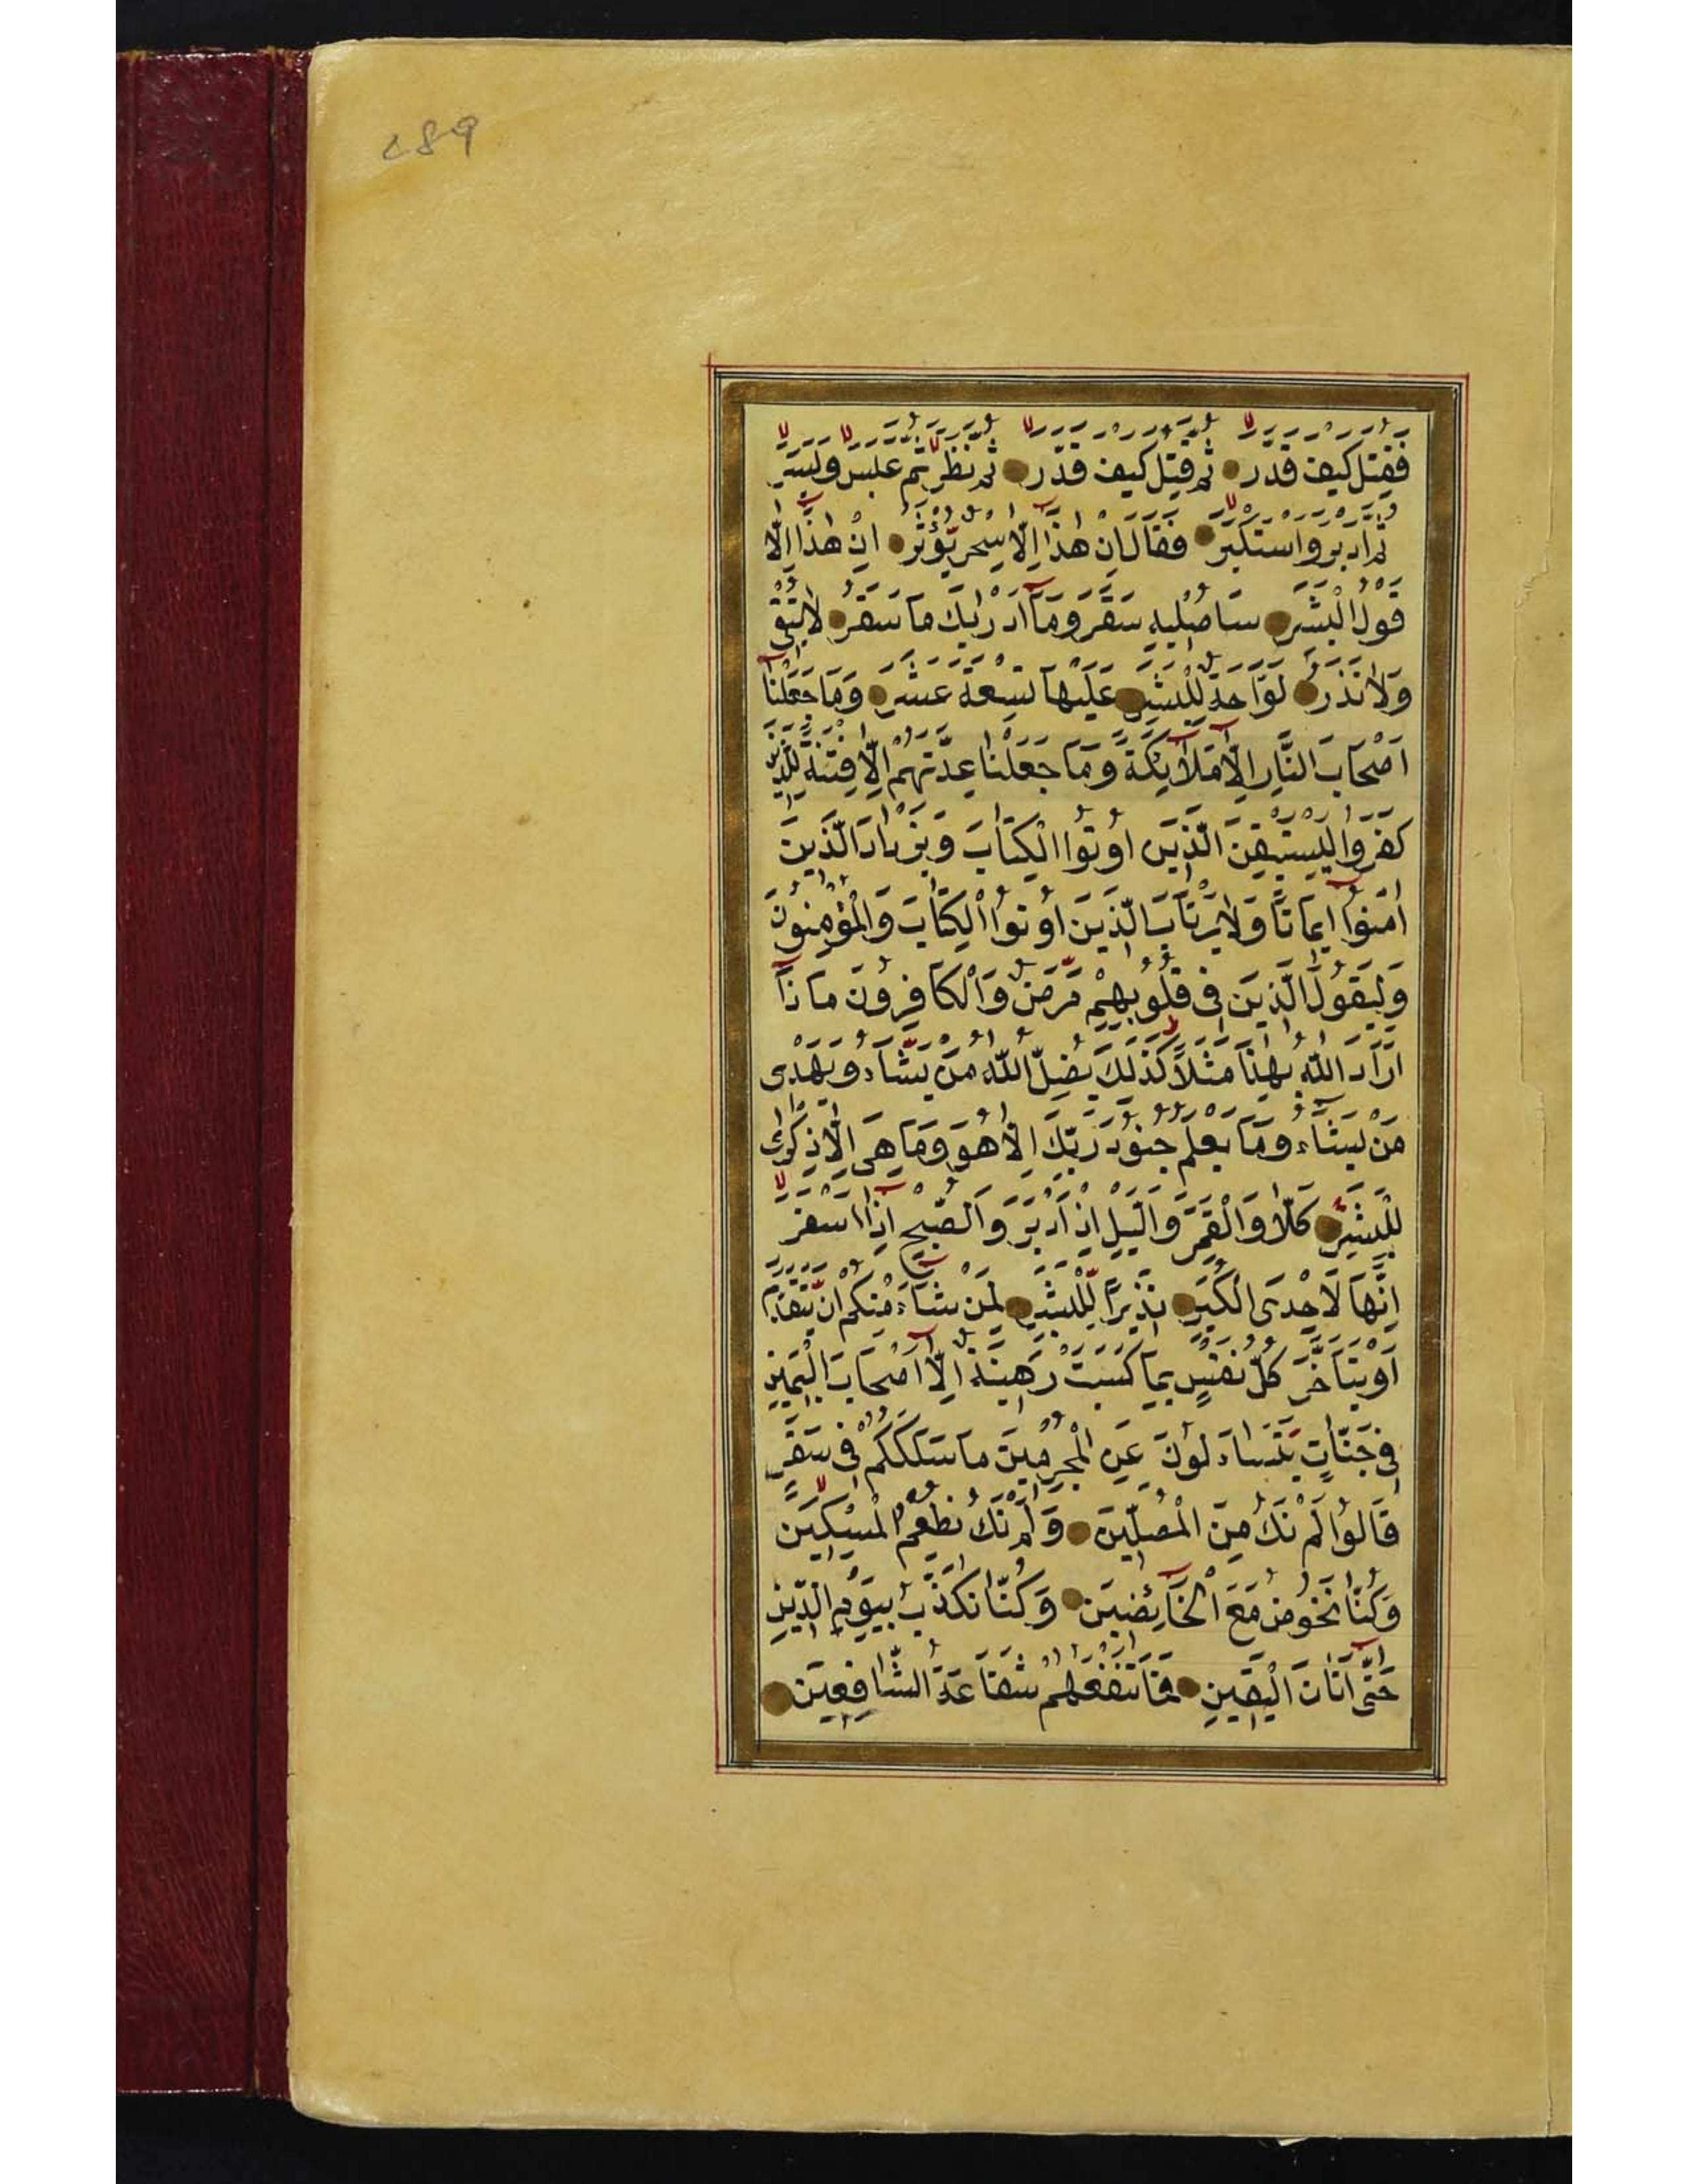 289
فَقُتِلَ كَيْفَ قَدَّرَ ثُمَّ قُتِلَ كَيْفَ قَدَّرَ ثُمَّ نَظَرَ ثُمَّ عَبَسَ وَبَسَرَ
ثُمَّ اَدْبَرَ وَاسْتَكْبَرَ فَقَالَ اِنْ هٰذَا اِلَّا سِحْرٌ يُؤْثَرُ اِنْ هٰذَا اِلَّا
قَوْلُ الْبَشَرِ سَاُصْلِيهِ سَقَرَ وَمَا اَدْرٰيكَ مَا سَقَرُ لَا تُبْقِى
وَلَا تَذَرُ لَوَّاحَةٌ لِلْبَشَرِ عَلَيْهَا تِسْعَةَ عَشَرَ وَمَا جَعَلْنَا
اَصْحَابَ النَّارِ اِلَّا مَلَائِكَةً وَمَا جَعَلْنَا عِدَّتَهُمْ اِلَّا فِتْنَةً لِلَّذِينَ
كَفَرُوا لِيَسْتَيْقِنَ الَّذِينَ اُوتُوا الْكِتَابَ وَيَزْدَادَ الَّذِينَ
اٰمَنُوا اِيمَانًا وَلَا يَرْتَابَ الَّذِينَ اُوتُوا الْكِتَابَ وَالْمُؤْمِنُونَ
وَلِيَقُولَ الَّذِينَ فِى قُلُوبِهِمْ مَرَضٌ وَالْكَافِرُونَ مَاذَا
اَرَادَ اللّٰهُ بِهٰذَا مَثَلًا كَذٰلِكَ يُضِلُّ اللّٰهُ مَنْ يَشَاءُ وَيَهْدِى
مَنْ يَشَاءُ وَمَا يَعْلَمُ جُنُودَ رَبِّكَ اِلَّا هُوَ وَمَا هِىَ اِلَّا ذِكْرٰى
لِلْبَشَرِ كَلَّا وَالْقَمَرِ وَالَّيْلِ اِذْ اَدْبَرَ وَالصُّبْحِ اِذَا اَسْفَرَ
اِنَّهَا لَاِحْدَى الْكُبَرِ نَذِيرًا لِلْبَشَرِ لِمَنْ شَاءَ مِنْكُمْ اَنْ يَتَقَدَّمَ
اَوْ يَتَاَخَّرَ كُلُّ نَفْسٍ بِمَا كَسَبَتْ رَهِينَةٌ اِلَّا اَصْحَابَ الْيَمِينِ
فِى جَنَّاتٍ يَتَسَاءَلُونَ عَنِ الْمُجْرِمِينَ مَا سَلَكَكُمْ فِى سَقَرَ
قَالُوا لَمْ نَكُ مِنَ الْمُصَلِّينَ وَلَمْ نَكُ نُطْعِمُ الْمِسْكِينَ
وَكُنَّا نَخُوضُ مَعَ الْخَائِضِينَ وَكُنَّا نُكَذِّبُ بِيَوْمِ الدِّينِ
حَتّٰى اَتَانَا الْيَقِينُ فَمَا تَنْفَعُهُمْ شَفَاعَةُ الشَّافِعِينَ